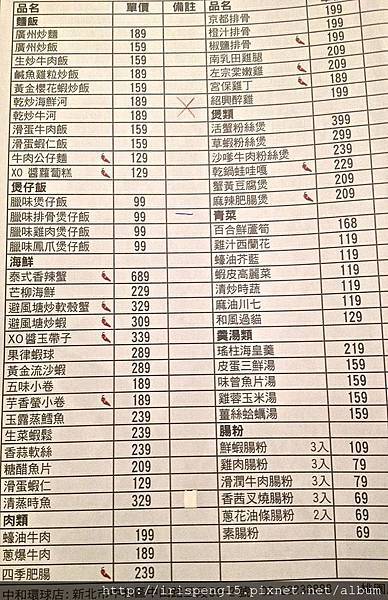 品名 單價 備註
麵飯
廣州炒麵 189
廣州炒飯 159
生炒牛肉飯 159
鹹魚雞粒炒飯 189
黃金櫻花蝦炒飯 159
乾炒海鮮河 189
乾炒牛河 189
滑蛋牛肉飯 159
滑蛋蝦仁飯 159
牛肉公仔麵 129
XO 醬蘿蔔糕 129
煲仔飯
臘味煲仔飯 99
臘味排骨煲仔飯 99
臘味雞肉煲仔飯 99
臘味鳳爪煲仔飯 99
海鮮
泰式香辣蟹 689
芒柳海鮮 229
避風塘炒軟殼蟹 329
避風塘炒蝦 309
XO醬玉帶子 339
果律蝦球 189
黃金流沙蝦 189
五味小卷 189
芋香螢小卷 189
玉露蒸鱈魚 239
生菜蝦鬆 239
香蒜軟絲 239
糖醋魚片 209
滑蛋蝦仁 129
清蒸時魚 329
肉類
蠔油牛肉 199
蔥爆牛肉 189
四季肥腸 239
品名
京都排骨 199
橙汁排骨 199
椒鹽排骨 199
南乳田雞腿 209
左宗棠嫩雞 209
宮保雞丁 189
紹興醉雞 199
煲類
活蟹粉絲煲 399
草蝦粉絲煲 299
沙嗲牛肉粉絲煲 209
乾鍋蛙哇嘎 229
蟹黃豆腐煲 209
麻辣肥腸煲 209
青菜
百合鮮蘆筍 168
雞汁西蘭花 119
蠔油芥藍 119
蝦皮高麗菜 119
清炒時蔬 119
麻油川七 119
和風過貓 129
羹湯類
瑤柱海皇羹 219
皮蛋三鮮湯 159
味曾魚片湯 159
雞蓉玉米湯 159
薑絲蛤蠣湯 159
腸粉
鮮蝦腸粉 3入 109
雞肉腸粉 3入 79
滑潤牛肉腸粉 3入 79
香茜叉燒腸粉 3入 69
蔥花油條腸粉 2入 69
素腸粉 69
中和環球店: 新北市
http://irispeng15.pixnet.net/album/